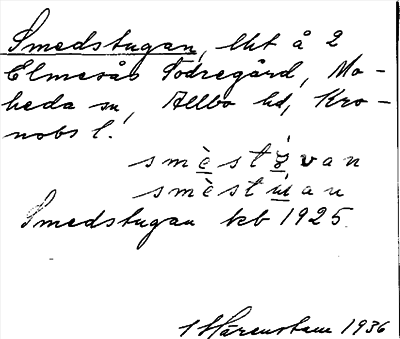 Smedstugan, lht å 2
Elmesås Södregård, Mo-
heda sn, Allbo hd, Kro-
nobs l.
smè̱stʒ̱́van
smèstú̱an
Smedstugan kb 1925.
Härenstam 1936